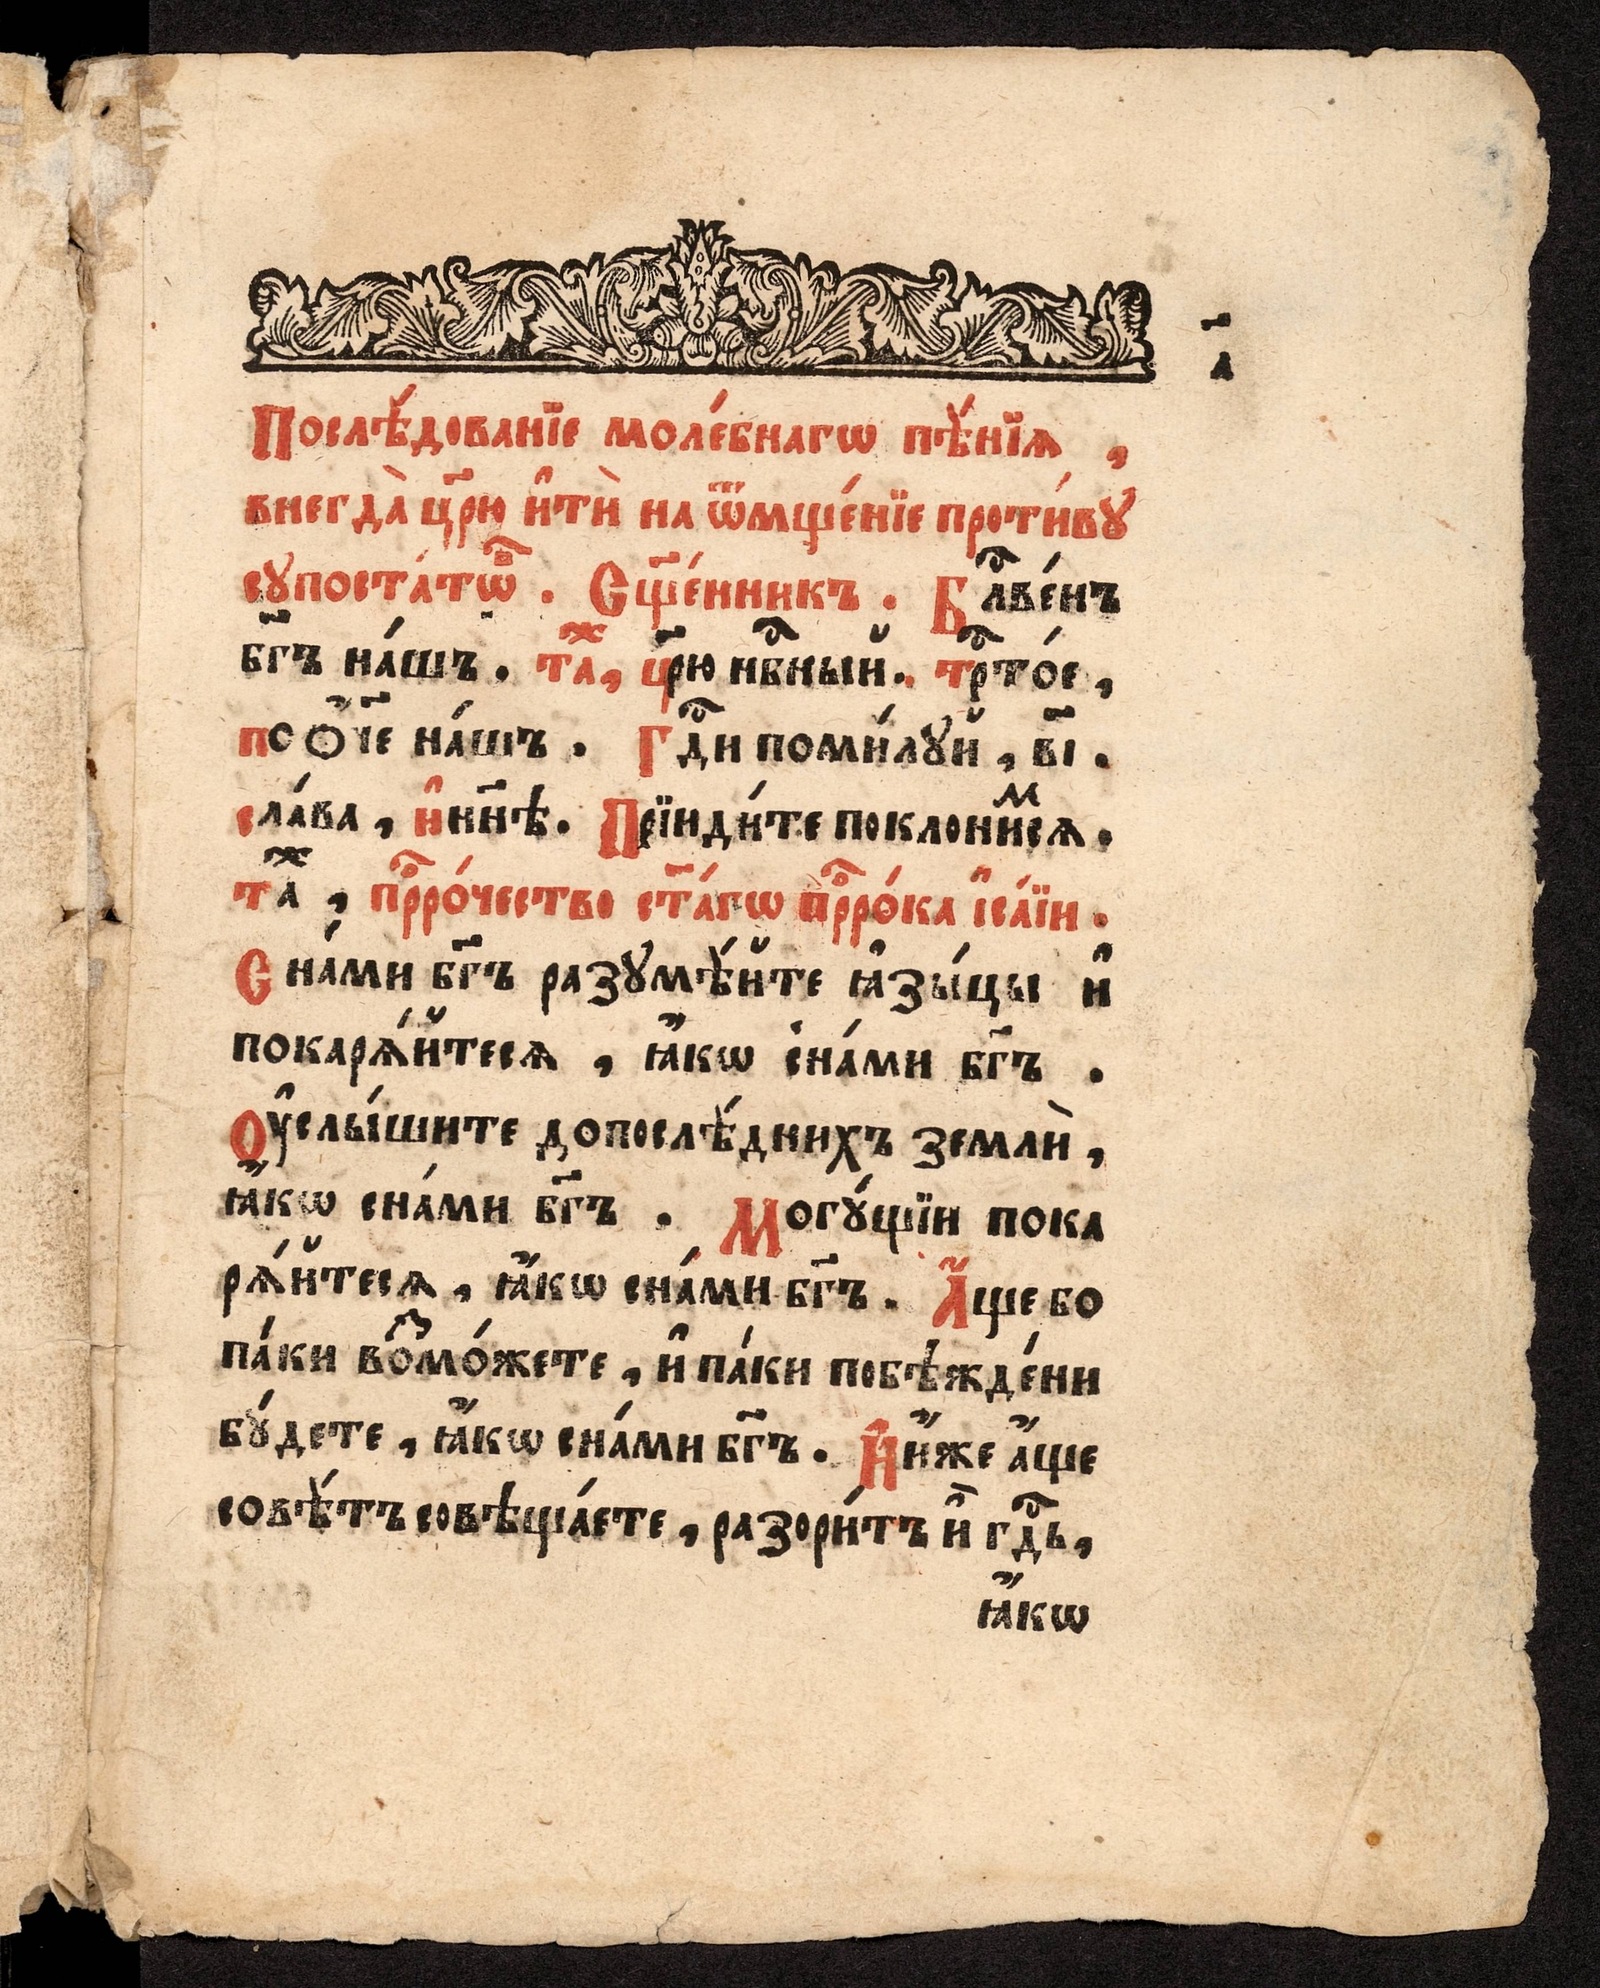 а҃
Послѣ́дованїе моле́бнагѡ пѣ́нїѧ ,
внегда̀ цр҃ю и҆тѝ на ѿмще́нїе проти́вꙋ
сꙋпоста́тѡⷡ҇ . Сщ҃е́нникъ . Блⷭ҇ве́нъ
бг҃ъ на́шъ . таⷤ , цр҃ю нбⷭ҇ный . трⷭ҇то́е ,
по ѻ҆́ч҃е на́шъ . Гдⷭ҇и поми́лꙋй , в҃і .
сла́ва , и҆ нн҃ѣ . Прїиди́те поклониⷨсѧ .
таⷤ , прⷪ҇ро́чество ст҃а́гѡ прⷪ҇ро́ка і҆са́їи .
С на́ми бг҃ъ разꙋмѣ́йте ꙗ҆зы́цы и҆
покарѧ́йтесѧ , ꙗ҆́кѡ сна́ми бг҃ъ .
Оу҆слы́шите допослѣ́днихъ землѝ ,
ꙗ҆́кѡ сна́ми бг҃ъ . Могꙋ́щїи пока
рѧ́йтесѧ , ꙗ҆́кѡ сна́ми бг҃ъ . А҆́ще бо
па́ки воⷥмо́жете , и҆ па́ки побѣжде́ни
бꙋ́дете , ꙗ҆́кѡ сна́ми бг҃ъ . И҆ и҆́же а҆́ще
совѣ́тъ совѣща́ете , разори́тъ и҆̀ гдⷭ҇ь ,
ꙗ҆́кѡ